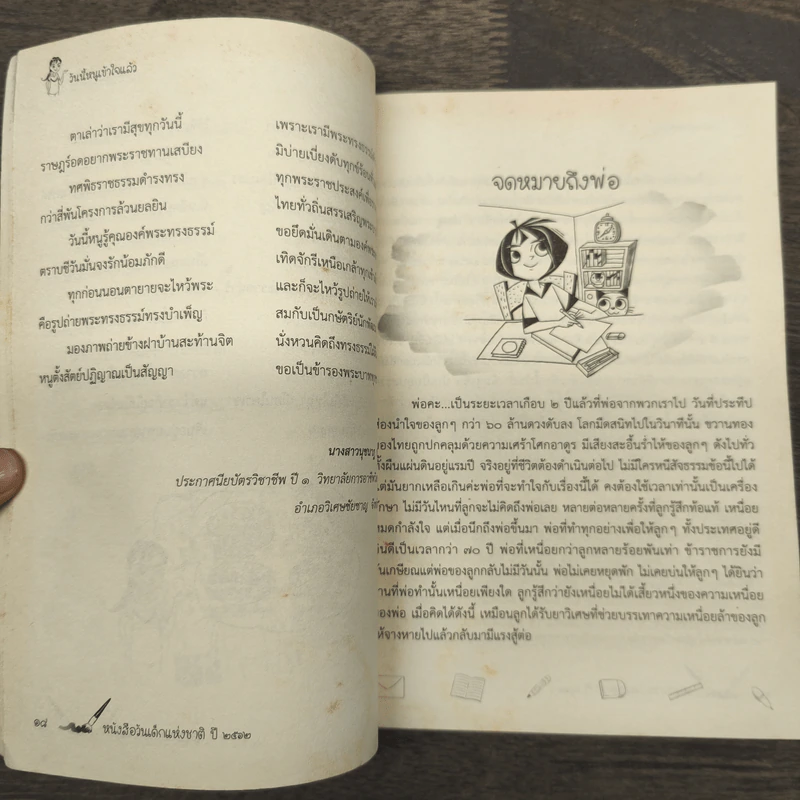 วันนี้หนูเข้าใจแล้ว
ตาเล่าว่าเรามีสุขทุกวันนี้ เพราะเรามีพระทรงธรรม
ราษฎร์อดอยากพระราชทานเสบียง มิบ่ายเบี่ยงดับทุกข์ร้อน
ทศพิธราชธรรมดำรงทรง ทุกพระราชประสงค์
กว่าสี่พันโครงการล้วนยลยิน ไทยทั่วถิ่นสรรเสริญ
วันนี้หนูรู้คุณองค์พระทรงธรรม์ ขอยึดมั่นเดินตามองค์
ตราบชีวันมั่นจงรักน้อมภักดี เทิดจักรีเหนือเกล้าทุก
ทุกก่อนนอนตายายจะไหว้พระ และก็จะไหว้รูปถ่าย
คือรูปถ่ายพระทรงธรรม์ทรงบำเพ็ญ สมกับเป็นกษัตริย์นัก
มองภาพถ่ายข้างฝาบ้านสะท้านจิต นั่งหวนคิดถึงทรงธรรม
หนูตั้งสัตย์ปฏิญาณเป็นสัญญา ขอเป็นข้ารองพระบาท
นางสาวนุชนาฎ
ประกาศนียบัตรวิชาชีพ ปี ๑ วิทยาลัยการอาชีพ
อำเภอวิเศษชัยชาญ
๑๘ หนังสือวันเด็กแห่งชาติ ปี ๒๕๖๒
จดหมายถึงพ่อ
พ่อคะ...เป็นระยะเวลาเกือบ ๒ ปีแล้วที่พ่อจากพวกเราไป วันที่ประทีป
ส่องนำใจของลูกๆ กว่า ๖๐ ล้านดวงดับลง โลกมืดสนิทไปในวินาทีนั้น ขวานทอง
ของไทยถูกปกคลุมด้วยความเศร้าโศกอาดูร มีเสียงสะอื้นร่ำไห้ของลูกๆ ดังไปทั่ว
ทั้งผืนแผ่นดินอยู่แรมปี จริงอยู่ที่ชีวิตต้องดำเนินต่อไป ไม่มีใครหนีสัจธรรมข้อนี้ไปได้
แต่มันยากเหลือเกินค่ะพ่อที่จะทำใจกับเรื่องนี้ได้ คงต้องใช้เวลาเท่านั้นเป็นเครื่อง
รักษา ไม่มีวันไหนที่ลูกจะไม่คิดถึงพ่อเลย หลายต่อหลายครั้งที่ลูกรู้สึกท้อแท้ เหนื่อย
หมดกำลังใจ แต่เมื่อนึกถึงพ่อขึ้นมา พ่อที่ทำทุกอย่างเพื่อให้ลูกๆ ทั้งประเทศอยู่ดี
กินดีเป็นเวลากว่า ๗๐ ปี พ่อที่เหนื่อยกว่าลูกหลายร้อยพันเท่า ข้าราชการยังมี
วันเกษียณแต่พ่อของลูกกลับไม่มีวันนั้น พ่อไม่เคยหยุดพัก ไม่เคยบ่นให้ลูกๆ ได้ยินว่า
งานที่พ่อทำนั้นเหนื่อยเพียงใด ลูกรู้สึกว่ายังเหนื่อยไม่ได้เสี้ยวหนึ่งของความเหนื่อย
ของพ่อ เมื่อคิดได้ดังนี้ เหมือนลูกได้รับยาวิเศษที่ช่วยบรรเทาความเหนื่อยล้าของลูก
ให้จางหายไปแล้วกลับมามีแรงสู้ต่อ